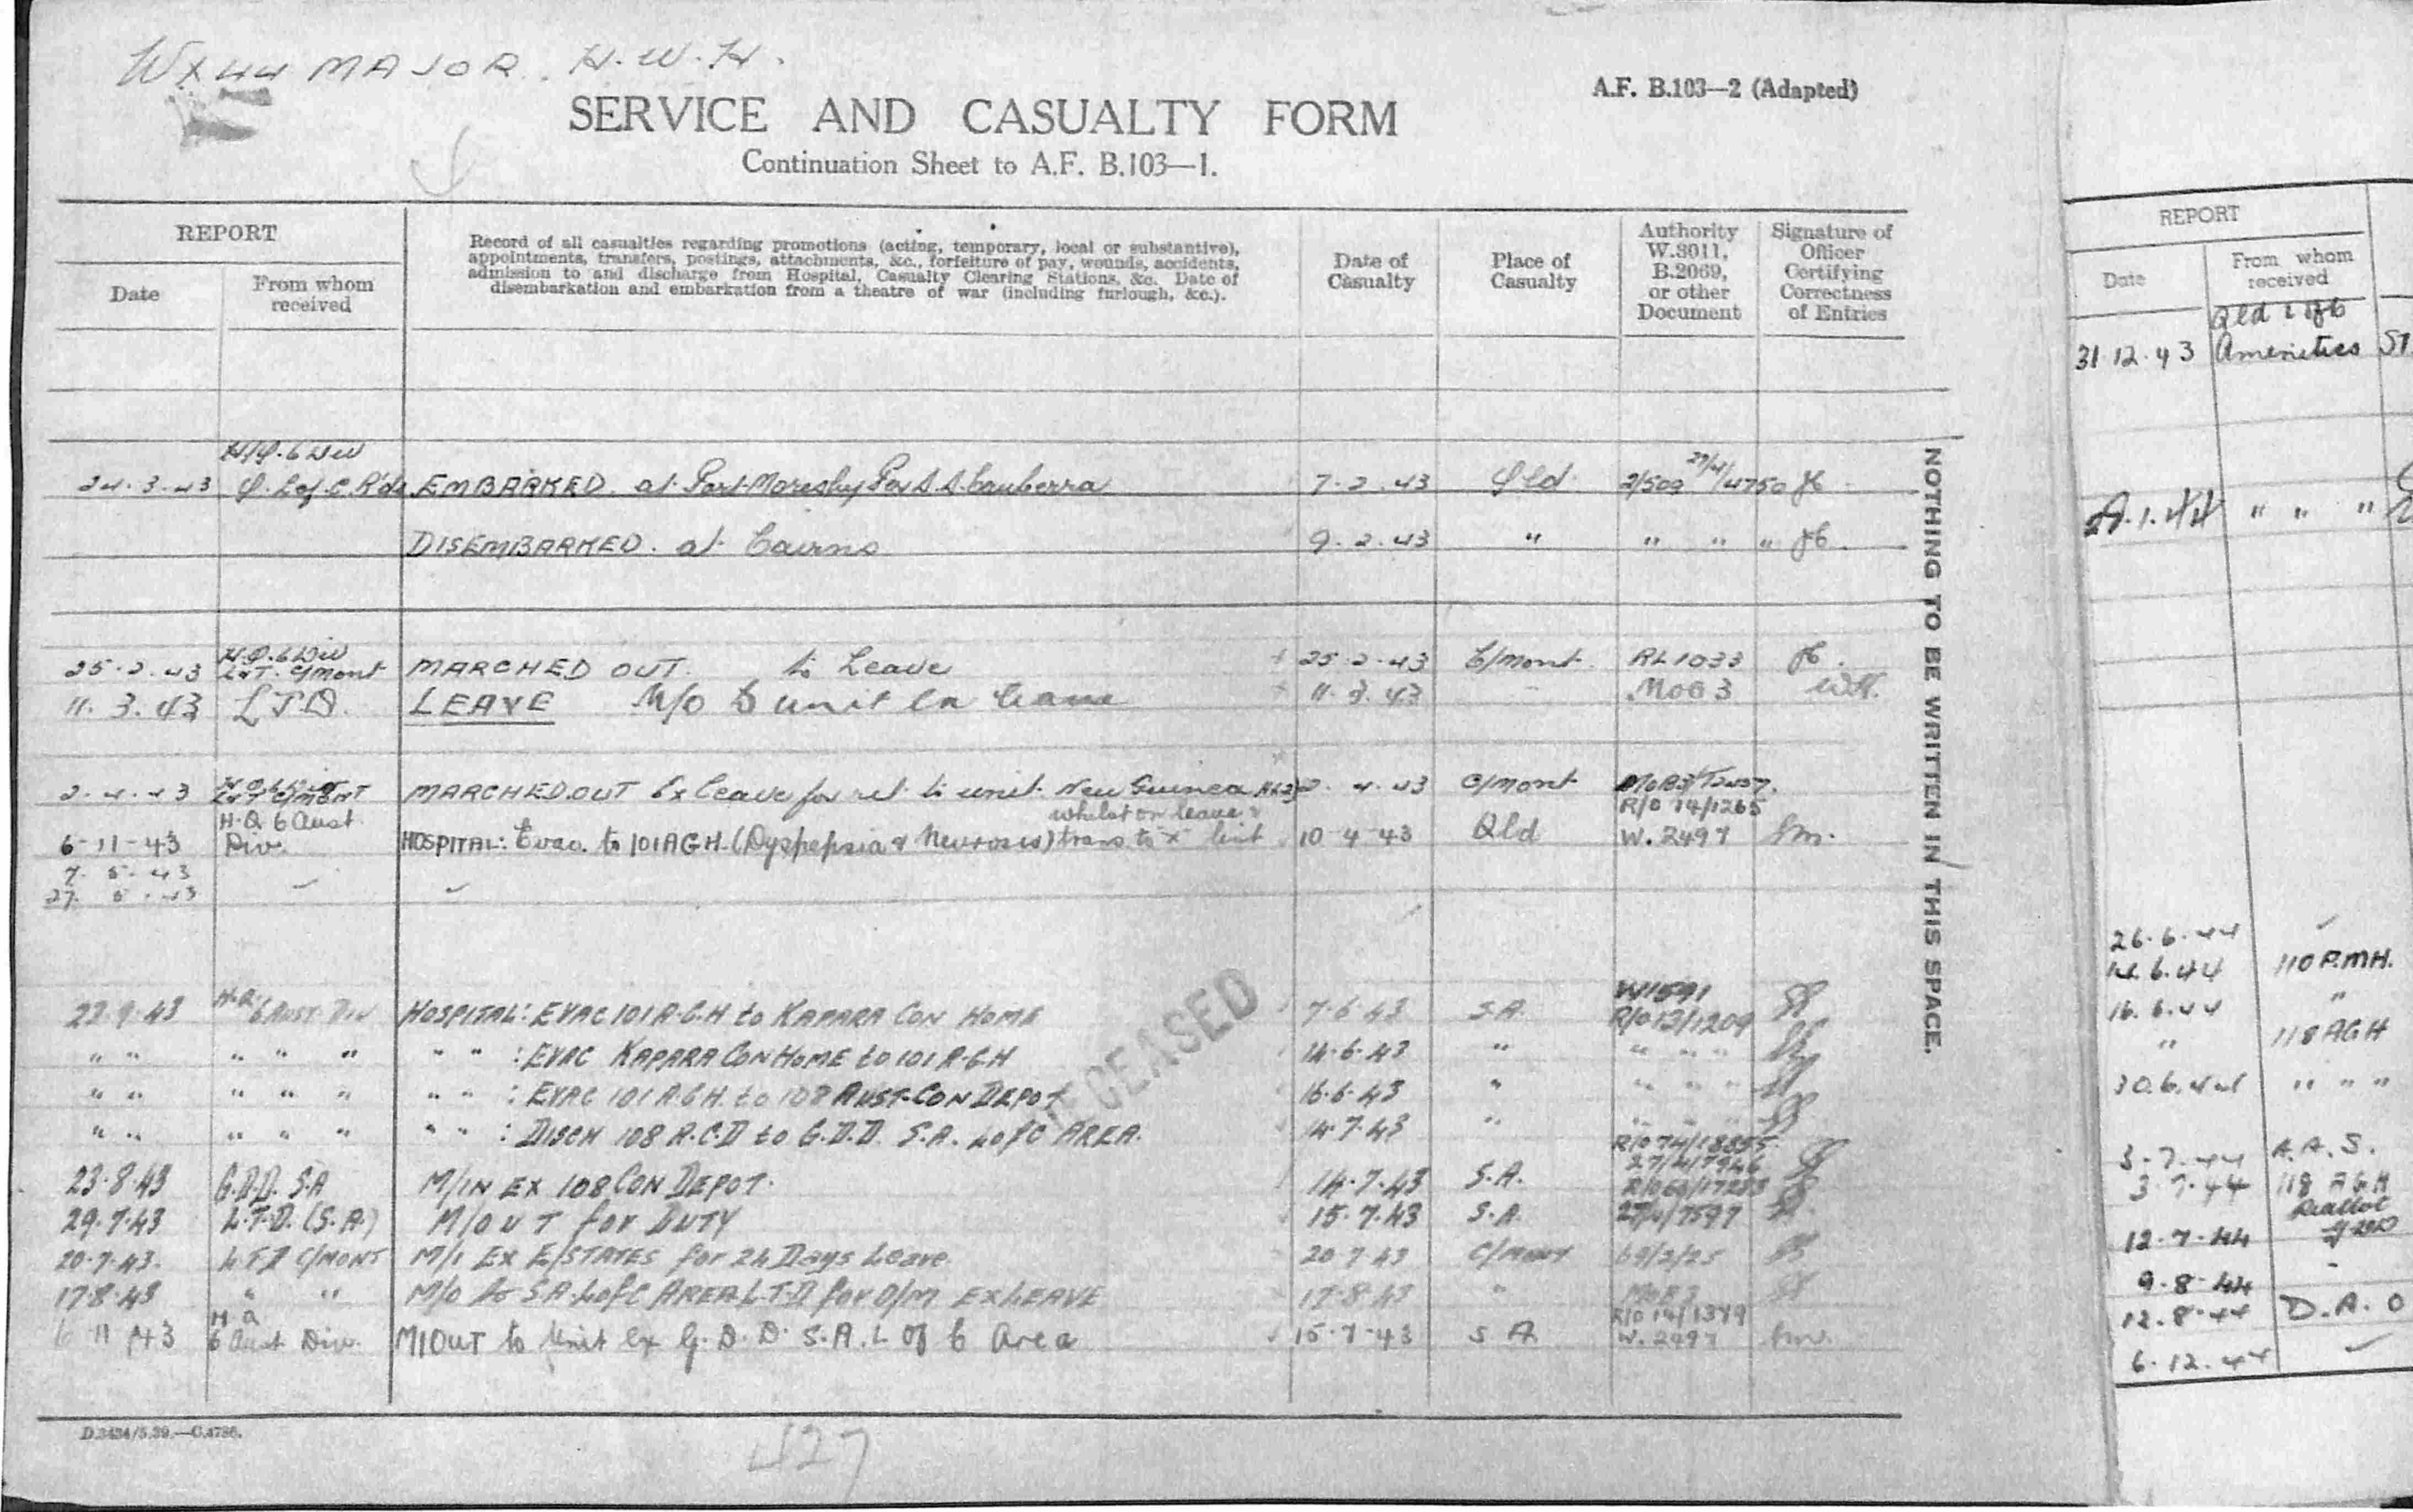 WX44 MAJOR. H.W.H.
A.F. B.103—2 (Adapted)
SERVICE AND CASUALTY FORM
Continuation Sheet to A.F. B.103—1.
REPORT
Date
From whom received
Record of all casualties regarding promotions (acting, temporary, local or substantive),
appointments, transfers, postings, attachments, &c., forfeiture of pay, wounds, accidents,
admission to and discharge from Hospital, Casualty Clearing Stations, &c. Date of
disembarkation and embarkation from a theatre of war (including furlough, &c.).
Date of Casualty
Place of Casualty
Authority W.3011, B.2069, or other Document
Signature of Officer Certifying Correctness of Entries
H/Q. 6 Div
24.3.43 Q. L of C R'ds EMBARKED at Port Moresby Per S.S. Canberra 7.2.43 Qld 2/509 27/4/4750
DISEMBARKED. at Cairns 9.2.43 " " " "
H.Q. 6 Div
25.2.43 L&T. C/mont MARCHED OUT. to Leave 25.2.43 C/mont RL1033
11.3.43 L.T.D. LEAVE M/O to unit on leave 11.3.43 MOB 3
2.4.43 L&T C/MONT MARCHED OUT Ex leave for ret. to unit. New Guinea 2.4.43 C/mont
H.Q. 6 Aust. whilst on leave & R/O 14/1265
6-11-43 Div. HOSPITAL: Evac. to 101 AGH. (Dyspepsia & Neurosis) trans to X list 10-4-43 Qld W.2497
7.5.43
27.5.43
H.Q. W1591
22.9.43 6 AUST. DIV HOSPITAL: EVAC 101 A.G.H to KAPARA CON HOME 7.6.43 S.A. R/O 13/1209
" " " " " " " : EVAC KAPARA CON HOME to 101 A.G.H 14.6.43 " " " "
" " " " " " " : EVAC 101 A.G.H. to 108 AUST. CON DEPOT 16.6.43 " " " "
" " " " " " " : DISCH 108 A.C.D to G.D.D. S.A. L of C AREA. 14.7.43 " " " "
DECEASED
R/O 74/18855
23.8.43 G.D.D. S.A M/IN EX 108 CON DEPOT. 14.7.43 S.A.
29.7.43 L.T.D. (S.A.) M/OUT for DUTY 15.7.43 S.A. 27/4/7597
20.7.43. L.T.D C/MONT M/I EX E/STATES for 24 Days Leave 20.7.43 C/Mont 69/2/25
17.8.43 " " M/O to S.A. L of C AREA L.T.D for O/M EX LEAVE 17.8.43 " MOB3
H Q R/O 14/1349
6 11 43 6 Aust Div. M/OUT to Unit ex G.D.D. S.A. L of C Area 15-7-43 S A W.2497
NOTHING TO BE WRITTEN IN THIS SPACE.
D.3434/5.39.—C.4786.
427
REPORT
Date
From whom received
Qld L of C
31.12.43 Amenities
" " "
26.6.44
14.6.44 110 P.M.H.
16.6.44 "
" 118 AGH
30.6.44 " " "
3.7.44 A.A.S.
3.7.44 118 AGH
12.7.44
9.8.44
12.8.44 D.A.O
6.12.44